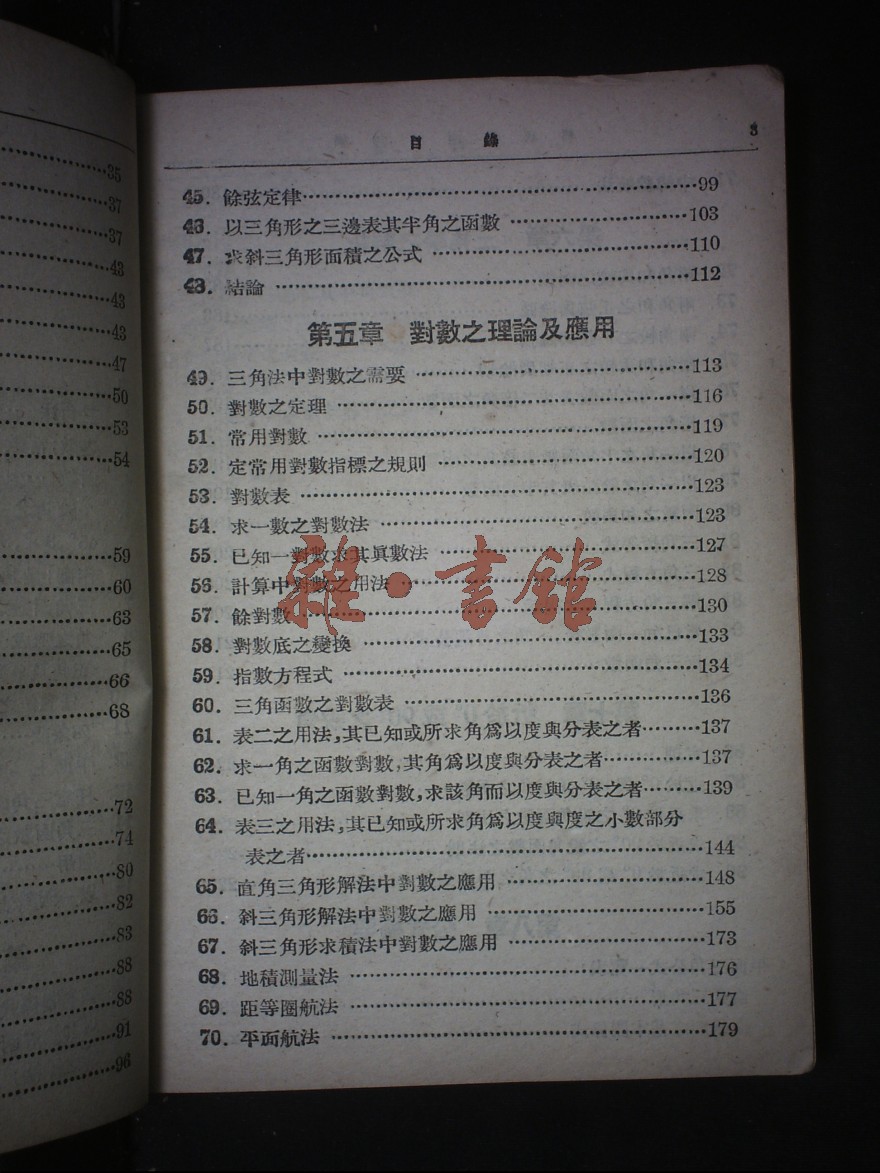 35
37
37
43
43
43
47
50
53
54
59
60
63
65
66
68
72
74
80
82
83
88
88
91
96
目　錄　3
45. 餘弦定律……99
46. 以三角形之三邊表其半角之函數……103
47. 求斜三角形面積之公式……110
48. 結論……112
第五章　對數之理論及應用
49. 三角法中對數之需要……113
50. 對數之定理……116
51. 常用對數……119
52. 定常用對數指標之規則……120
53. 對數表……123
54. 求一數之對數法……123
55. 已知一對數求其眞數法……127
56. 計算中對數之用法……128
57. 餘對數……130
58. 對數底之變換……133
59. 指數方程式……134
60. 三角函數之對數表……136
61. 表二之用法,其已知或所求角爲以度與分表之者……137
62. 求一角之函數對數,其角爲以度與分表之者……137
63. 已知一角之函數對數,求該角而以度與分表之者……139
64. 表三之用法,其已知或所求角爲以度與度之小數部分
表之者……144
65. 直角三角形解法中對數之應用……148
66. 斜三角形解法中對數之應用……155
67. 斜三角形求積法中對數之應用……173
68. 地積測量法……176
69. 距等圈航法……177
70. 平面航法……179
雜·書館